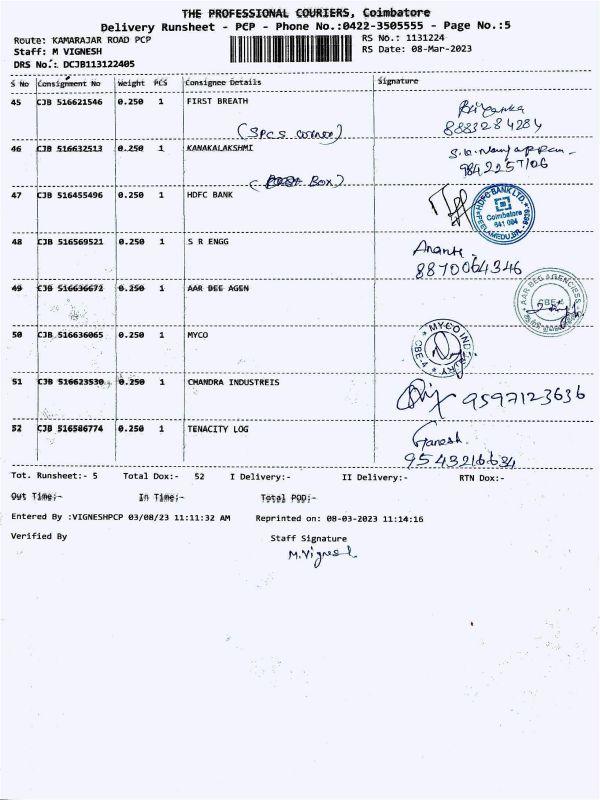 THE PROFESSIONAL COURIERS, Coimbatore
Delivery Runsheet - PCP - Phone No.:0422-3505555 - Page No.:5
Route: KAMARAJAR ROAD PCP
RS No.: 1131224
Staff: M VIGNESH
RS Date: 08-Mar-2023
DRS No.: DCJB113122405
S No Consignment No Weight PCS Consignee Details Signature
45 CJB 516621546 0.250 1 FIRST BREATH Priyanka
8883284284
(SPCS corner)
46 CJB 516632513 0.250 1 KANAKALAKSHMI
9842257106
(Box)
47 CJB 516455496 0.250 1 HDFC BANK
HDFC BANK LTD.
Coimbatore
641 004
48 CJB 516569521 0.250 1 S R ENGG Ananth
8870064346
49 CJB 516636672 0.250 1 AAR BEE AGEN
AAR BEE AGENCIESS
CBE
50 CJB 516636065 0.250 1 MYCO
MYCO INDUSTRY
CBE-4
51 CJB 516623530 0.250 1 CHANDRA INDUSTREIS 9597123636
52 CJB 516586774 0.250 1 TENACITY LOG Ganesh.
9543216634
Tot. Runsheet:- 5 Total Dox:- 52 I Delivery:- II Delivery:- RTN Dox:-
Out Time:- In Time:- Total POD:-
Entered By :VIGNESHPCP 03/08/23 11:11:32 AM Reprinted on: 08-03-2023 11:14:16
Verified By Staff Signature
M.Vignesh